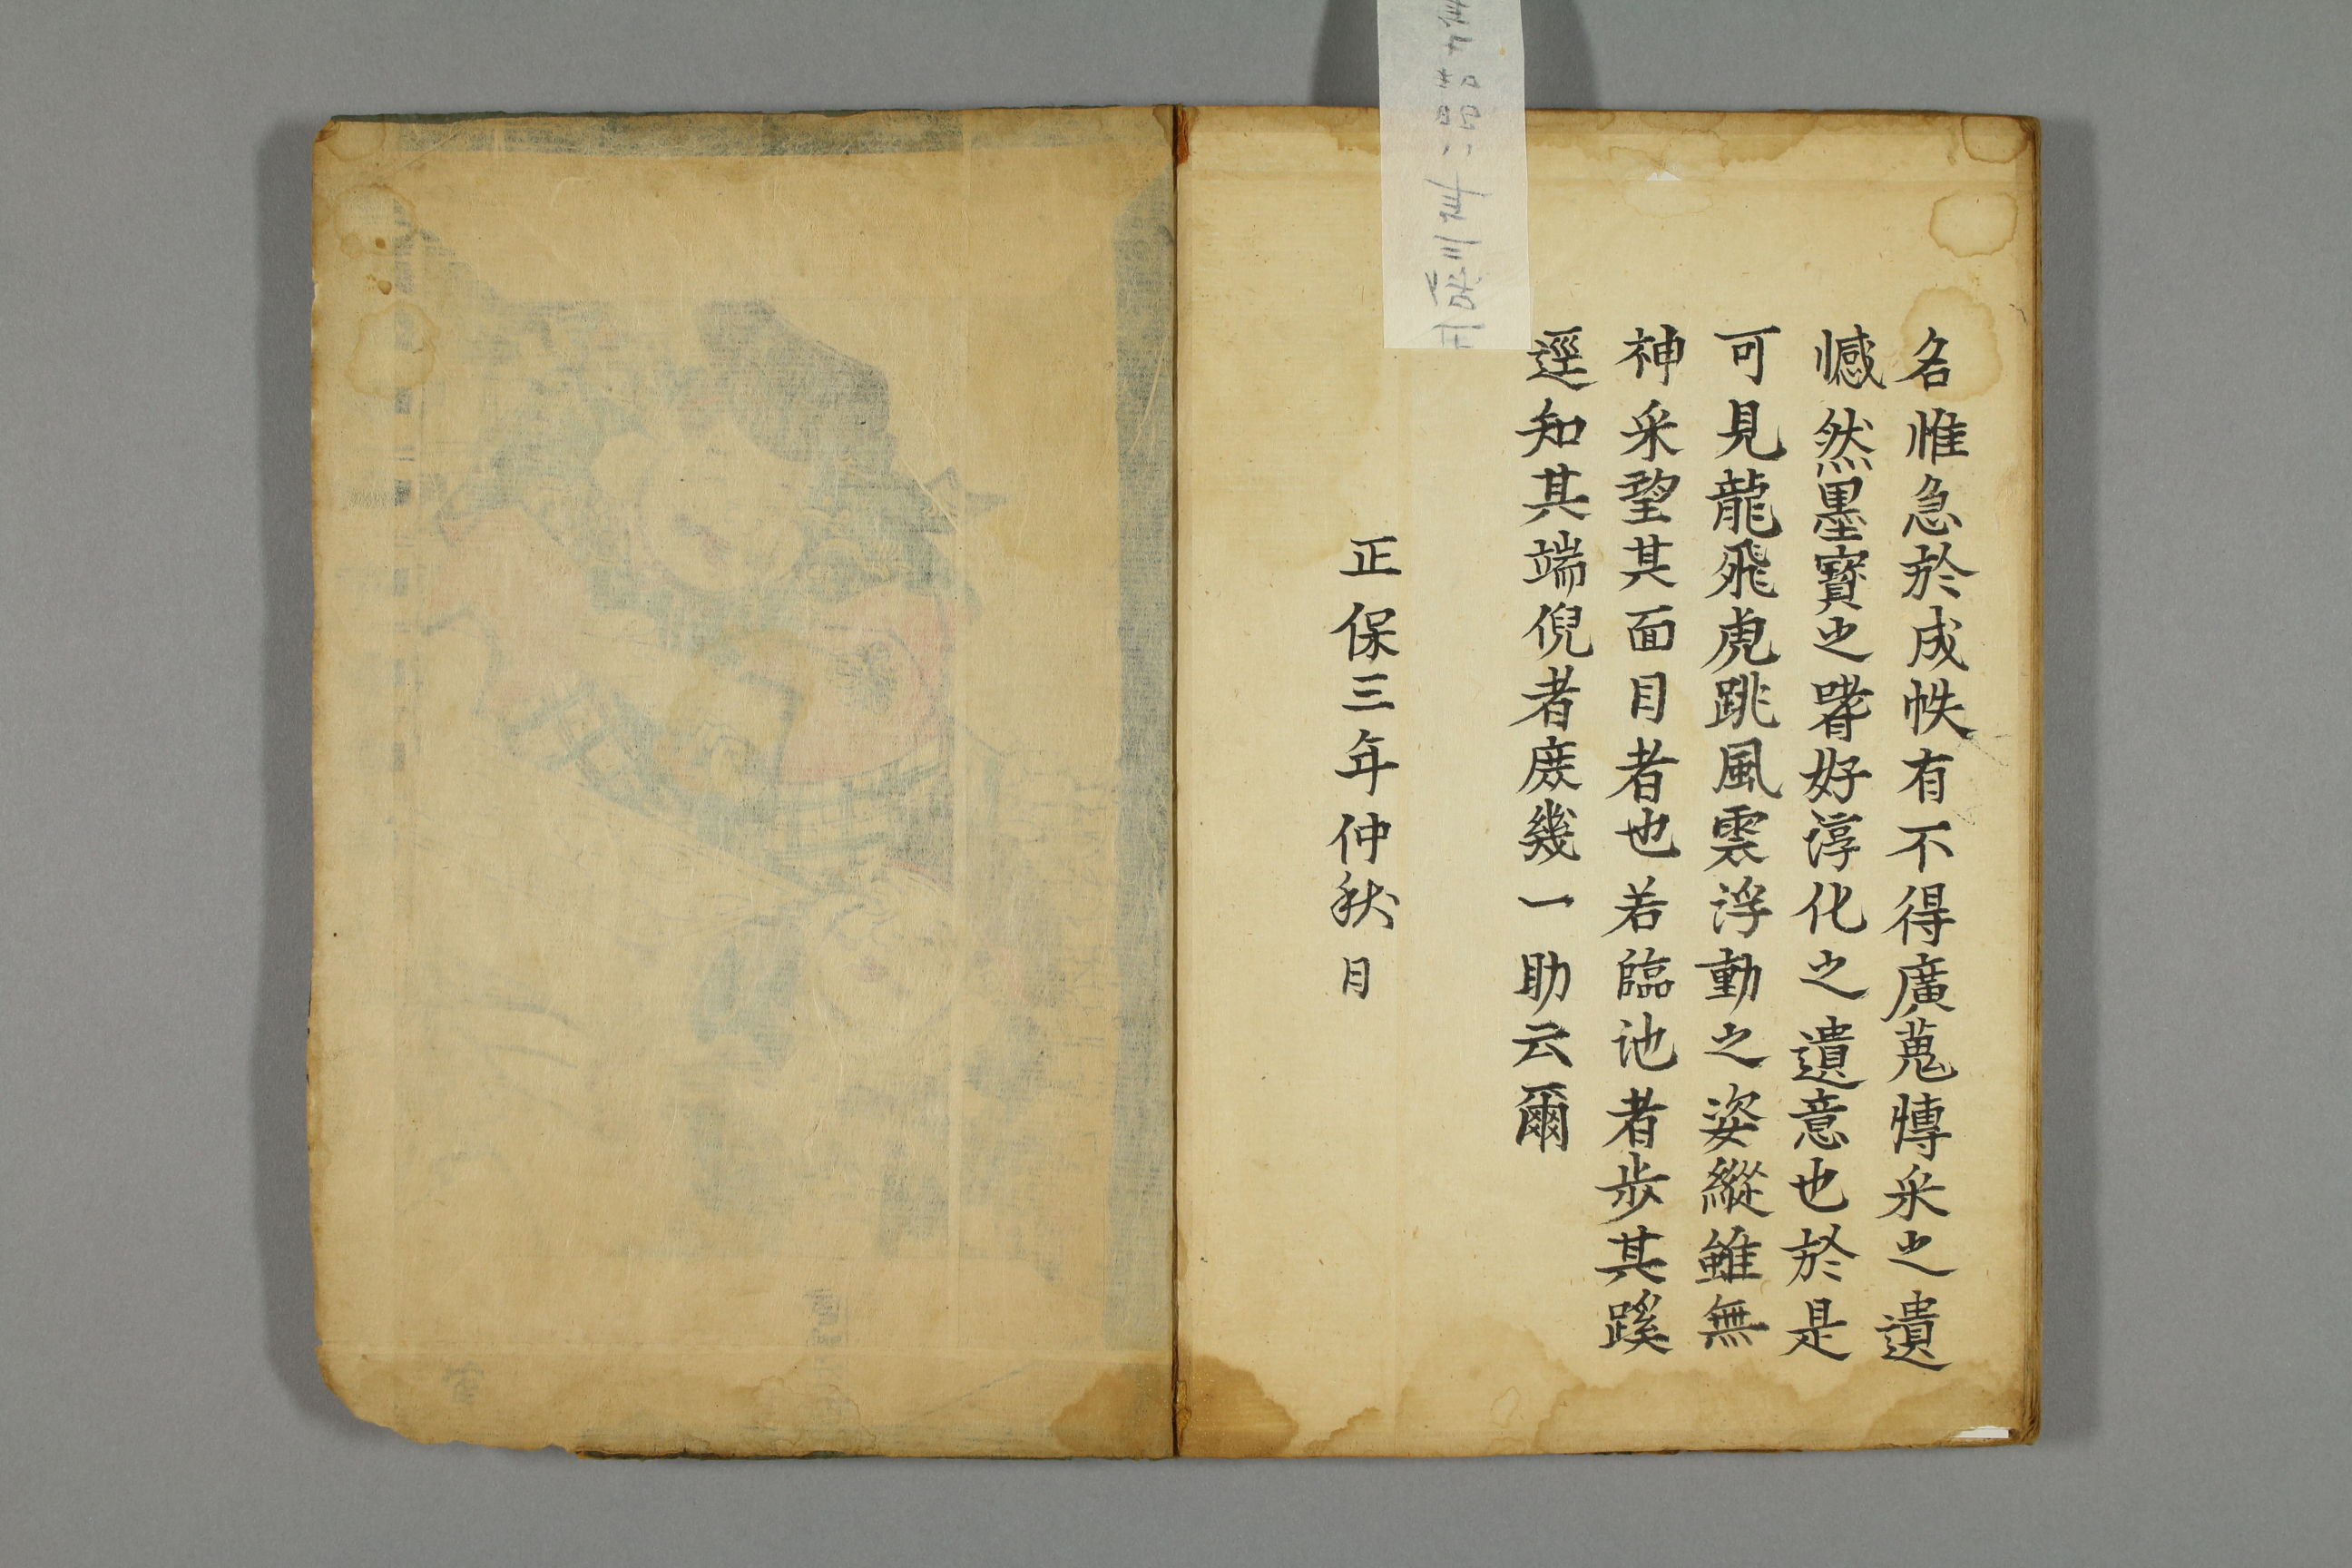 名惟急於成帙有不得廣蒐慱采之遺
憾然墨寳之嗜好淳化之遺意也於是
可見龍飛虎跳風雲浮動之姿縱雖無
神采望其面目者也若臨池者歩其蹊
逕知其端倪者庶幾一助云爾
正保三年仲秋日